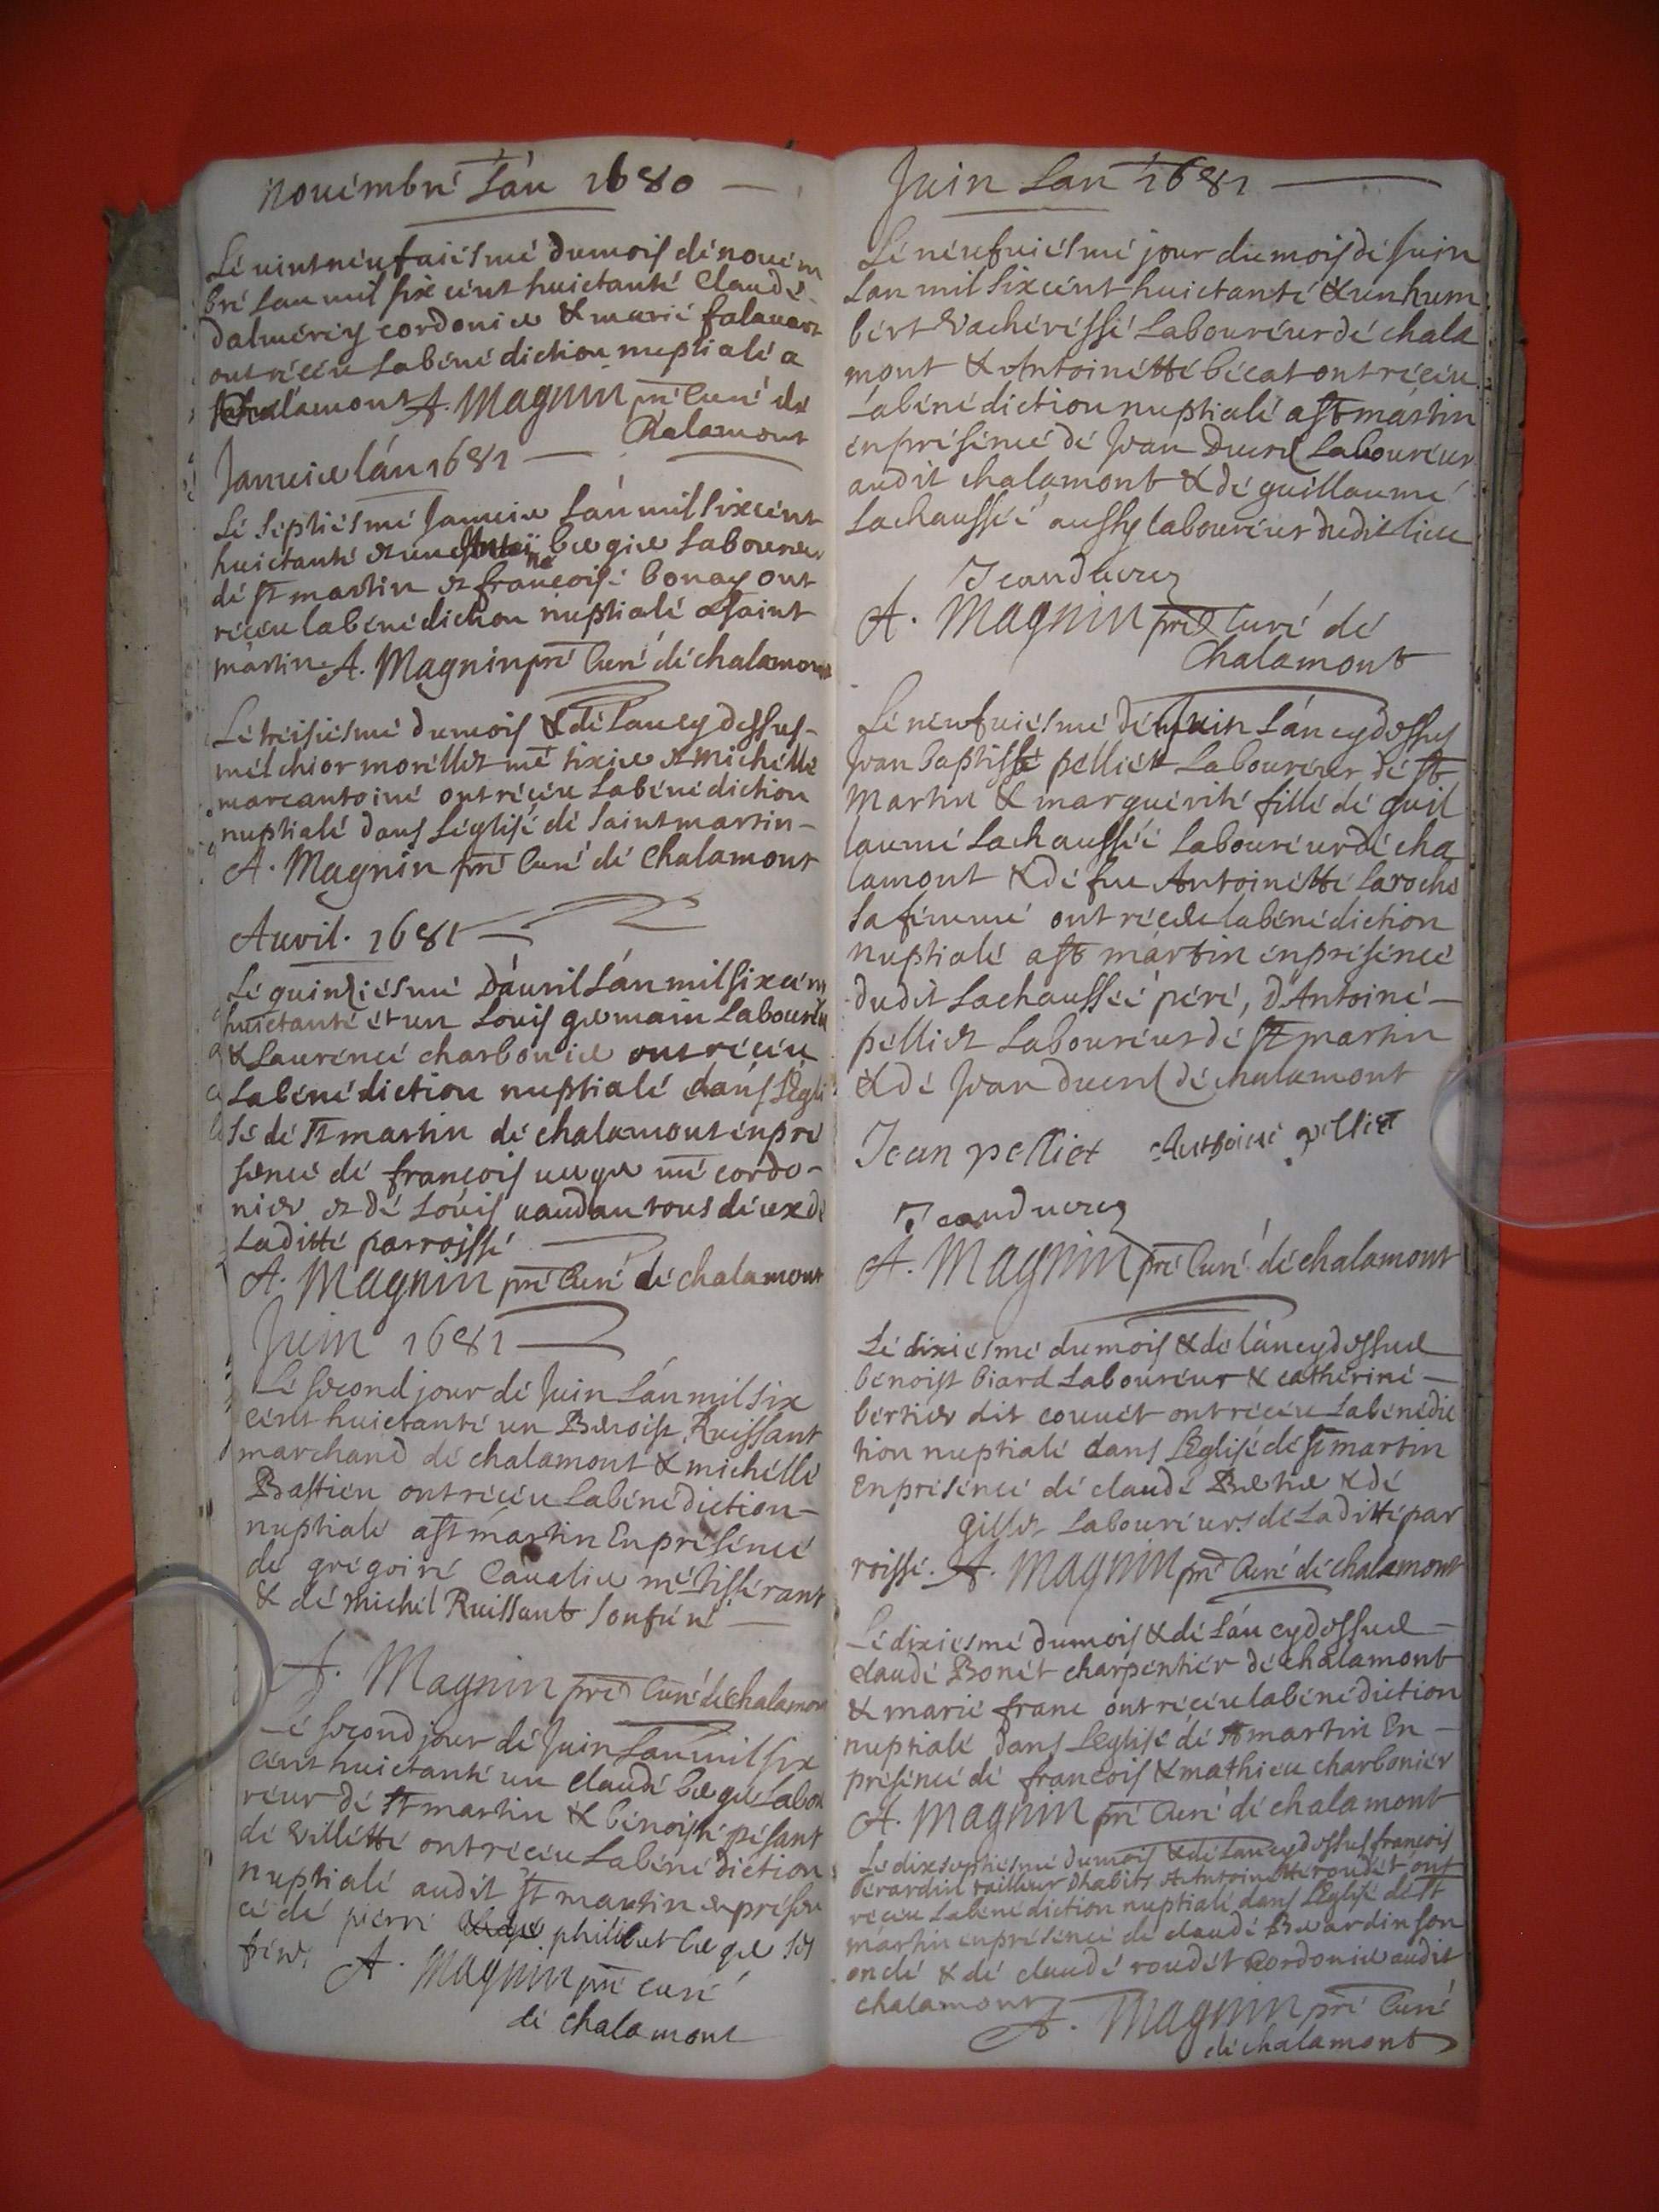 nouémbré Lán 1680
Lé uint néufuiésmé du mois dé nouém
bré Lan mil six cént huictanté Claudé
Dalmércy cordonier & marié falauart
ont récéu La béné diction nuptialé a
Chalamont A. Magnin pré Curé de
Chalamont
Januier lán 1681
Lé séptiésmé Januier Lán mil six cént
huictanté et un bergier Laboureur
dé st martin et françoisé bonay ont
récéu la béné diction nuptialé a saint
martin A. Magnin pré Curé dé chalamont
Lé treisiésmé du mois & dé Lan cy déssus
mélchior moréllet mé tixier & Michéllé
marcantoiné ont récéu La béné diction
nuptialé dans L'églisé dé saint martin
A. Magnin pré Curé dé Chalamont
Auril. 1681
Lé quinziésmé D'áuril Lán mil six cént
huictanté ét un Louis germain Laboureu
& Lauréncé charbonier ont récéu
La béné diction nuptialé dans L'égli
sé dé st martin dé chalamont én pré
sencé dé françois uerger mé cordo-
nier et dé Loüis uaudan tous déux dé
Laditté parroissé
A. Magnin pré Curé dé chalamont
Juin 1681
Lé second jour dé Juin Lán mil six
cént huictanté un Benoist Ruissant
marchand dé chalamont & michéllé
Bastién ont récéu La béné diction
nuptialé a st martin En préséncé
dé grégoiré Caualier mé tissérant
& dé michél Ruissant son fréré
A. Magnin pré Curé dé Chalamont
Lé second jour dé Juin Lan mil six
cént huictanté un Claudé bergier Labou
réur dé st martin & bénoisté pésant
dé Villétté ont récéu La béné diction
nuptialé audit st martin en présen
cé dé pierré philibert bergier ses
fréres A. Magnin pré curé
dé chalamont
Juin Lan 1681
Lé néufuiésmé jour du mois dé Juin
Lan mil six cént huictanté & un hum
bért Vachéréssé Labouréur dé chala
mont & Antoinétté bécat ont récéu
La béné diction nuptialé a st martin
én préséncé dé Jean Ducrez Labouréur
audit chalamont & dé guillaumé
Lachaussé é aussy labouréur dudit lieu
Jean ducrez
A. Magnin pré Curé dé
Chalamont
Lé néufuiésmé dé Juin Lán cy dessus
Jean baptisté pélliét Labouréur dé st
Martin & marguérité fillé dé guil
laumé Lachausséé Labouréur dé cha
lamont & dé fue Antoinétté Laroché
sa fémmé ont récéu la béné diction
nuptialé a st martin én préséncé
dudit Lachausséé péré, D'Antoiné
pélliet Labouréur dé st martin
& dé Jean ducrez dé chalamont
Jean pelliet Anthoine pelliet
Jean ducrez
A. Magnin pré Curé dé chalamont
Lé dixiésmé du mois & dé lán cy dessus
bénoist biard Labouréur & cathériné
bértier dit couuét ont récéu La bénédic
tion nuptialé dans L'Eglisé dé st martin
En préséncé dé claudé & dé
gillet Labouréurs dé Laditté par
roissé. A. Magnin pré Curé dé chalamont
Lé dixiésmé du mois & dé Lán cy dessus
claudé Bonét charpéntiér dé chalamont
& marié franc ont récéu la béné diction
nuptialé dans L'Eglisé dé st martin En
préséncé dé françois & mathieu charboniér
A. Magnin pré Curé dé chalamont
Lé dix séptiésmé du mois & dé Lan cy dessus françois
bérardin tailleur d'habits & Antoinétté roudét ont
récéu La béné diction nuptialé dans L'Eglisé dé st
martin én préséncé dé claudé Berardin son
onclé & dé claudé roudét Cordonier audit
chalamont A. Magnin pré Curé
dé chalamont